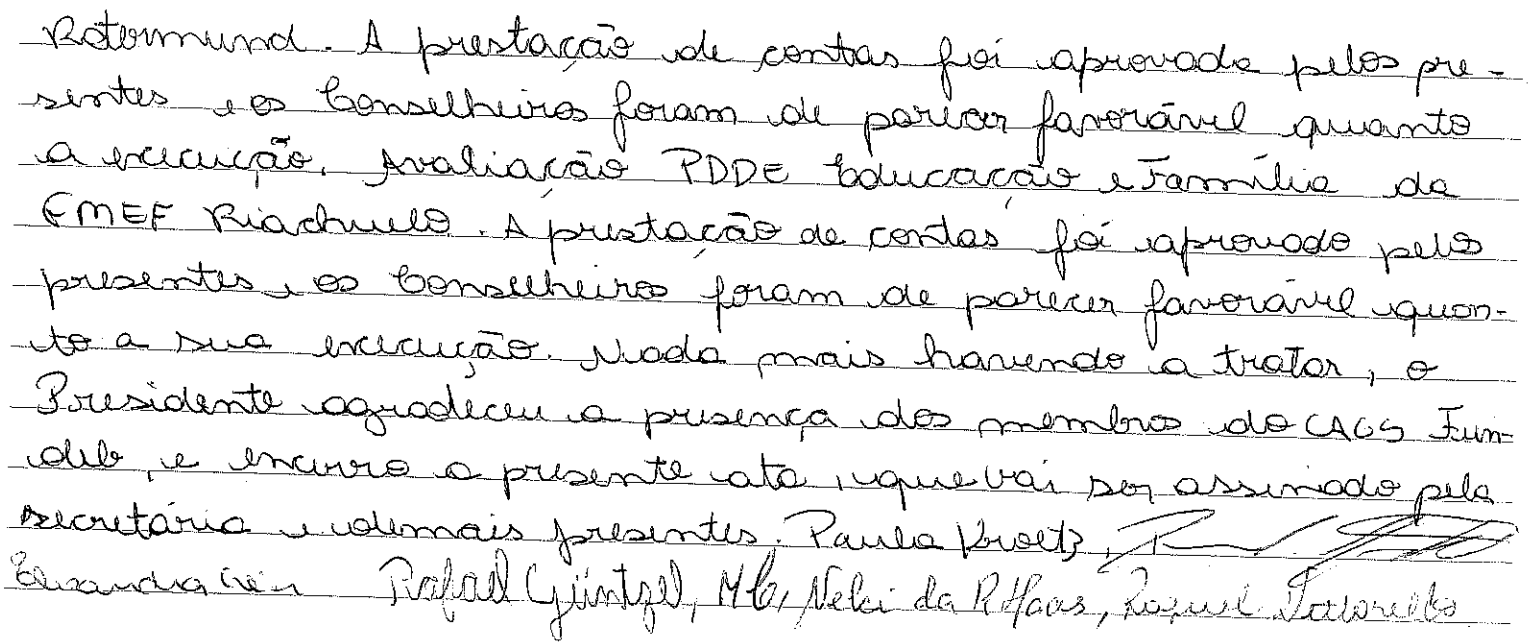 Rotermund. A prestação de contas foi aprovada pelos pre-
sentes e os Conselheiros foram de parecer favorável quanto
a execução. Avaliação PDDE Educação e Família da
EMEF Riachuelo. A prestação de contas foi aprovado pelos
presentes e os Conselheiros foram de parecer favorável quan-
to a sua execução. Nada mais havendo a tratar, o
Presidente agradeceu a presença dos membros do CACS Fun-
deb, e encerro a presente ata, que vai ser assinado pela
secretária e demais presentes. Paula Kroetz,
Rafael Güntzel, Nelci da R Haas, Raquel